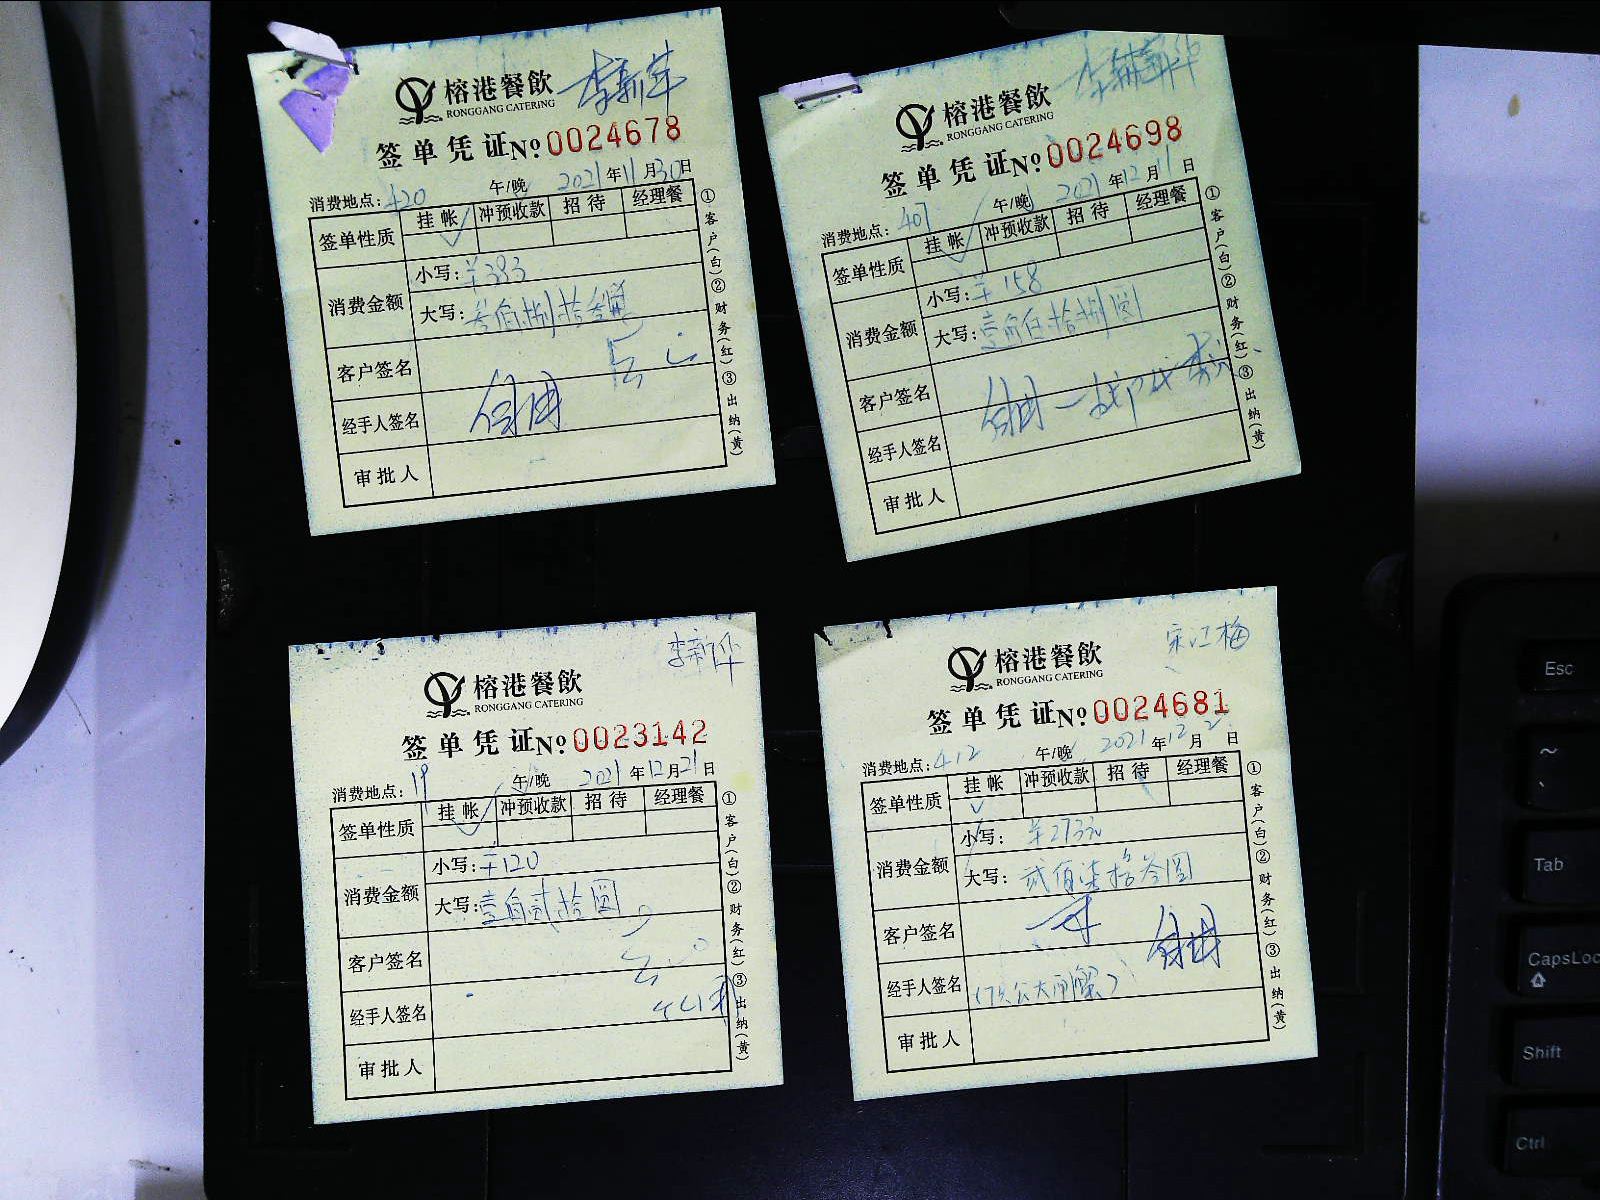 榕港餐飲 李新华
RONGGANG CATERING
签单凭证№ 0024678
消费地点: 420 午/晚 2021年11月30日
签单性质 挂帐 冲预收款 招待 经理餐
✓
消费金额 小写: ¥383
大写: 叁佰捌拾叁圆
客户签名
经手人签名
审批人
①客户(白)②财务(红)③出纳(黄)
榕港餐飲
RONGGANG CATERING
签单凭证№ 0024698
消费地点: 407 午/晚 2021年12月11日
签单性质 挂帐 冲预收款 招待 经理餐
✓
消费金额 小写: ¥158
大写: 壹佰伍拾捌圆
客户签名
经手人签名
审批人
①客户(白)②财务(红)③出纳(黄)
李新华
榕港餐飲
RONGGANG CATERING
签单凭证№ 0023142
消费地点: 19 午/晚 2021年12月21日
签单性质 挂帐 冲预收款 招待 经理餐
✓
消费金额 小写: ¥120
大写: 壹佰贰拾圆
客户签名
经手人签名
审批人
①客户(白)②财务(红)③出纳(黄)
宋江梅
榕港餐飲
RONGGANG CATERING
签单凭证№ 0024681
消费地点: 412 午/晚 2021年12月2日
签单性质 挂帐 冲预收款 招待 经理餐
✓
消费金额 小写: ¥273元
大写: 贰佰柒拾叁圆
客户签名
经手人签名 (7只公大闸蟹)
审批人
①客户(白)②财务(红)③出纳(黄)
Esc
~
`
Tab
CapsLoc
Shift
Ctrl